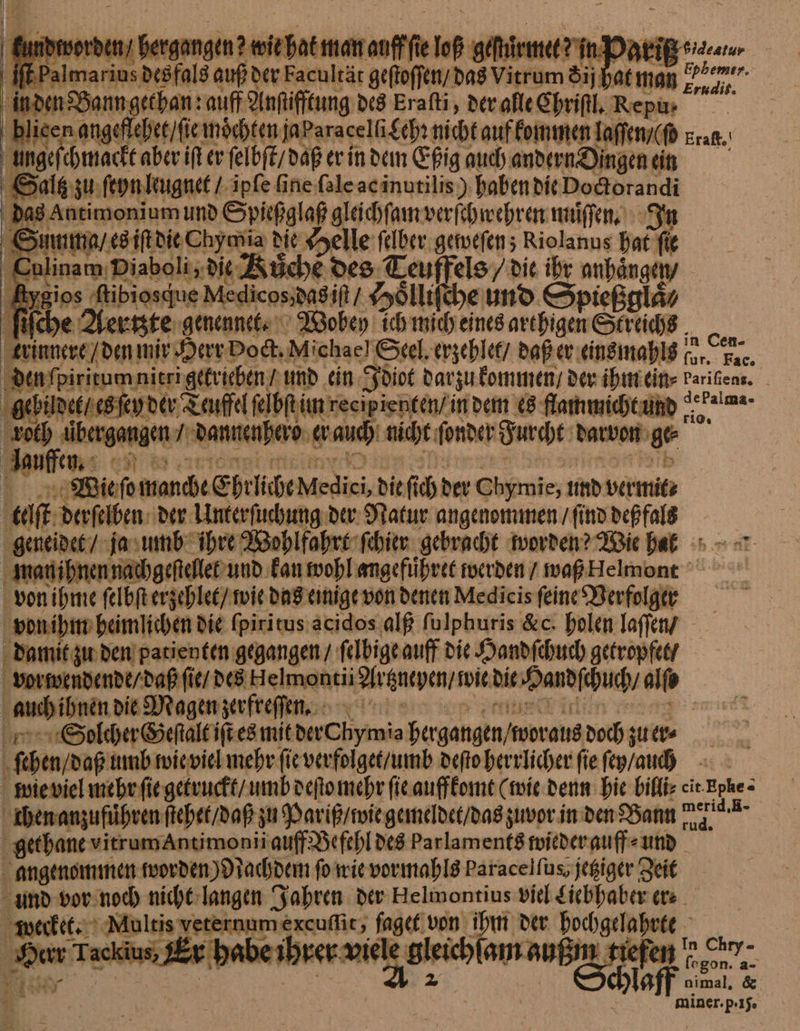 kundworden/ hergangen? wie hat man auff sie loß gestürmet? in Pariß
ist Palmarius desfals auß der Facultät gestossen/ das Vitrum ♁ij hat man
in den Bann gethan: auff Anstifftung des Erasti, der alle Christl. Repu-
blicen angeflehet/ sie möchten ja Paracelsi Lehr nicht auf kommen lassen/ (so
ungeschmackt aber ist er selbst/ daß er in dem Eßig auch andern Dingen ein
Saltz zu seyn leugnet / ipse sine sale ac inutilis) haben die Doctorandi
das Antimonium und Spießglaß gleichsam verschwehren müssen. In
Summa/ es ist die Chymia die Helle selber gewesen; Riolanus hat sie
Culinam Diaboli, die Küche des Teuffels / die ihr anhängen/
stygios stibiosque Medicos, das ist / Höllische und Spießglä-
sische Aertzte genennet. Wobey ich mich eines arthigen Streichs
erinnere / den mir Herr Doct. Michael Seel. erzehlet/ daß er einsmahls
den spiritum nitri getrieben / und ein Idiot darzu kommen/ der ihm ein-
gebildet/ es sey der Teuffel selbst im recipienten/ in dem es flammicht und
roth übergangen / dannenhero er auch nicht sonder Furcht darvon ge-
lauffen.
Wie so manche Ehrliche Medici, die sich der Chymie, und vermit-
telst derselben der Untersuchung der Natur angenommen / sind deßfals
geneidet / ja umb ihre Wohlfahrt schier gebracht worden? Wie hat
man ihnen nachgestellet und kan wohl angeführet werden / waß Helmont
von ihme selbst erzehlet/ wie das einige von denen Medicis seine Verfolger
von ihm heimlichen die spiritus acidos alß sulphuris &c. holen lassen/
damit zu den patienten gegangen / selbige auff die Handschuch getropfet/
vorwendende/ daß sie/ des Helmontii Artzneyen/ wie die Handschuch/ also
auch ihnen die Magen zerfressen.
Solcher Gestalt ist es mit der Chymia hergangen/ woraus doch zu er-
sehen/ daß umb wie viel mehr sie verfolget/ umb desto herrlicher sie sey/ auch
wie viel mehr sie getruckt/ umb desto mehr sie auffkomt (wie denn hie billi-
chen anzuführen stehet/ daß zu Pariß/ wie gemeldet/ das zuvor in den Bann
gethane vitrum Antimonii auff Befehl des Parlaments wieder auff- und
angenommen worden) Nachdem so wie vormahls Paracelsus, jetziger Zeit
und vor noch nicht langen Jahren der Helmontius viel Liebhaber er-
wecket. Multis veternum excussit, saget von ihm der hochgelahrte
Herr Tackius, Er habe ihrer viele gleichsam außm tiefen
A 2 Schlaff
Sideatur
Ephemer.
Erudit.
Erast.
in Cen-
sur. Fac.
Parisiens.
de Palma-
rio.
cit. Ephe-
merid, E-
rud.
In Chry-
sogon. a-
nimal. &
miner. p. 15.